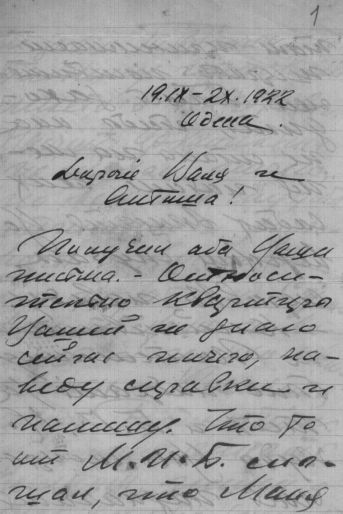 1
19.IX-2X.1922
Одесса.
Дорогие Ваня и
Антоша!
Получил оба Ваши
письма. - Относи-
тельно квартиры
Вашей не знаю
сейчас ничего, на-
веду справки и
напишу. Что то
от М.И.Б. слы-
шал, что Маня